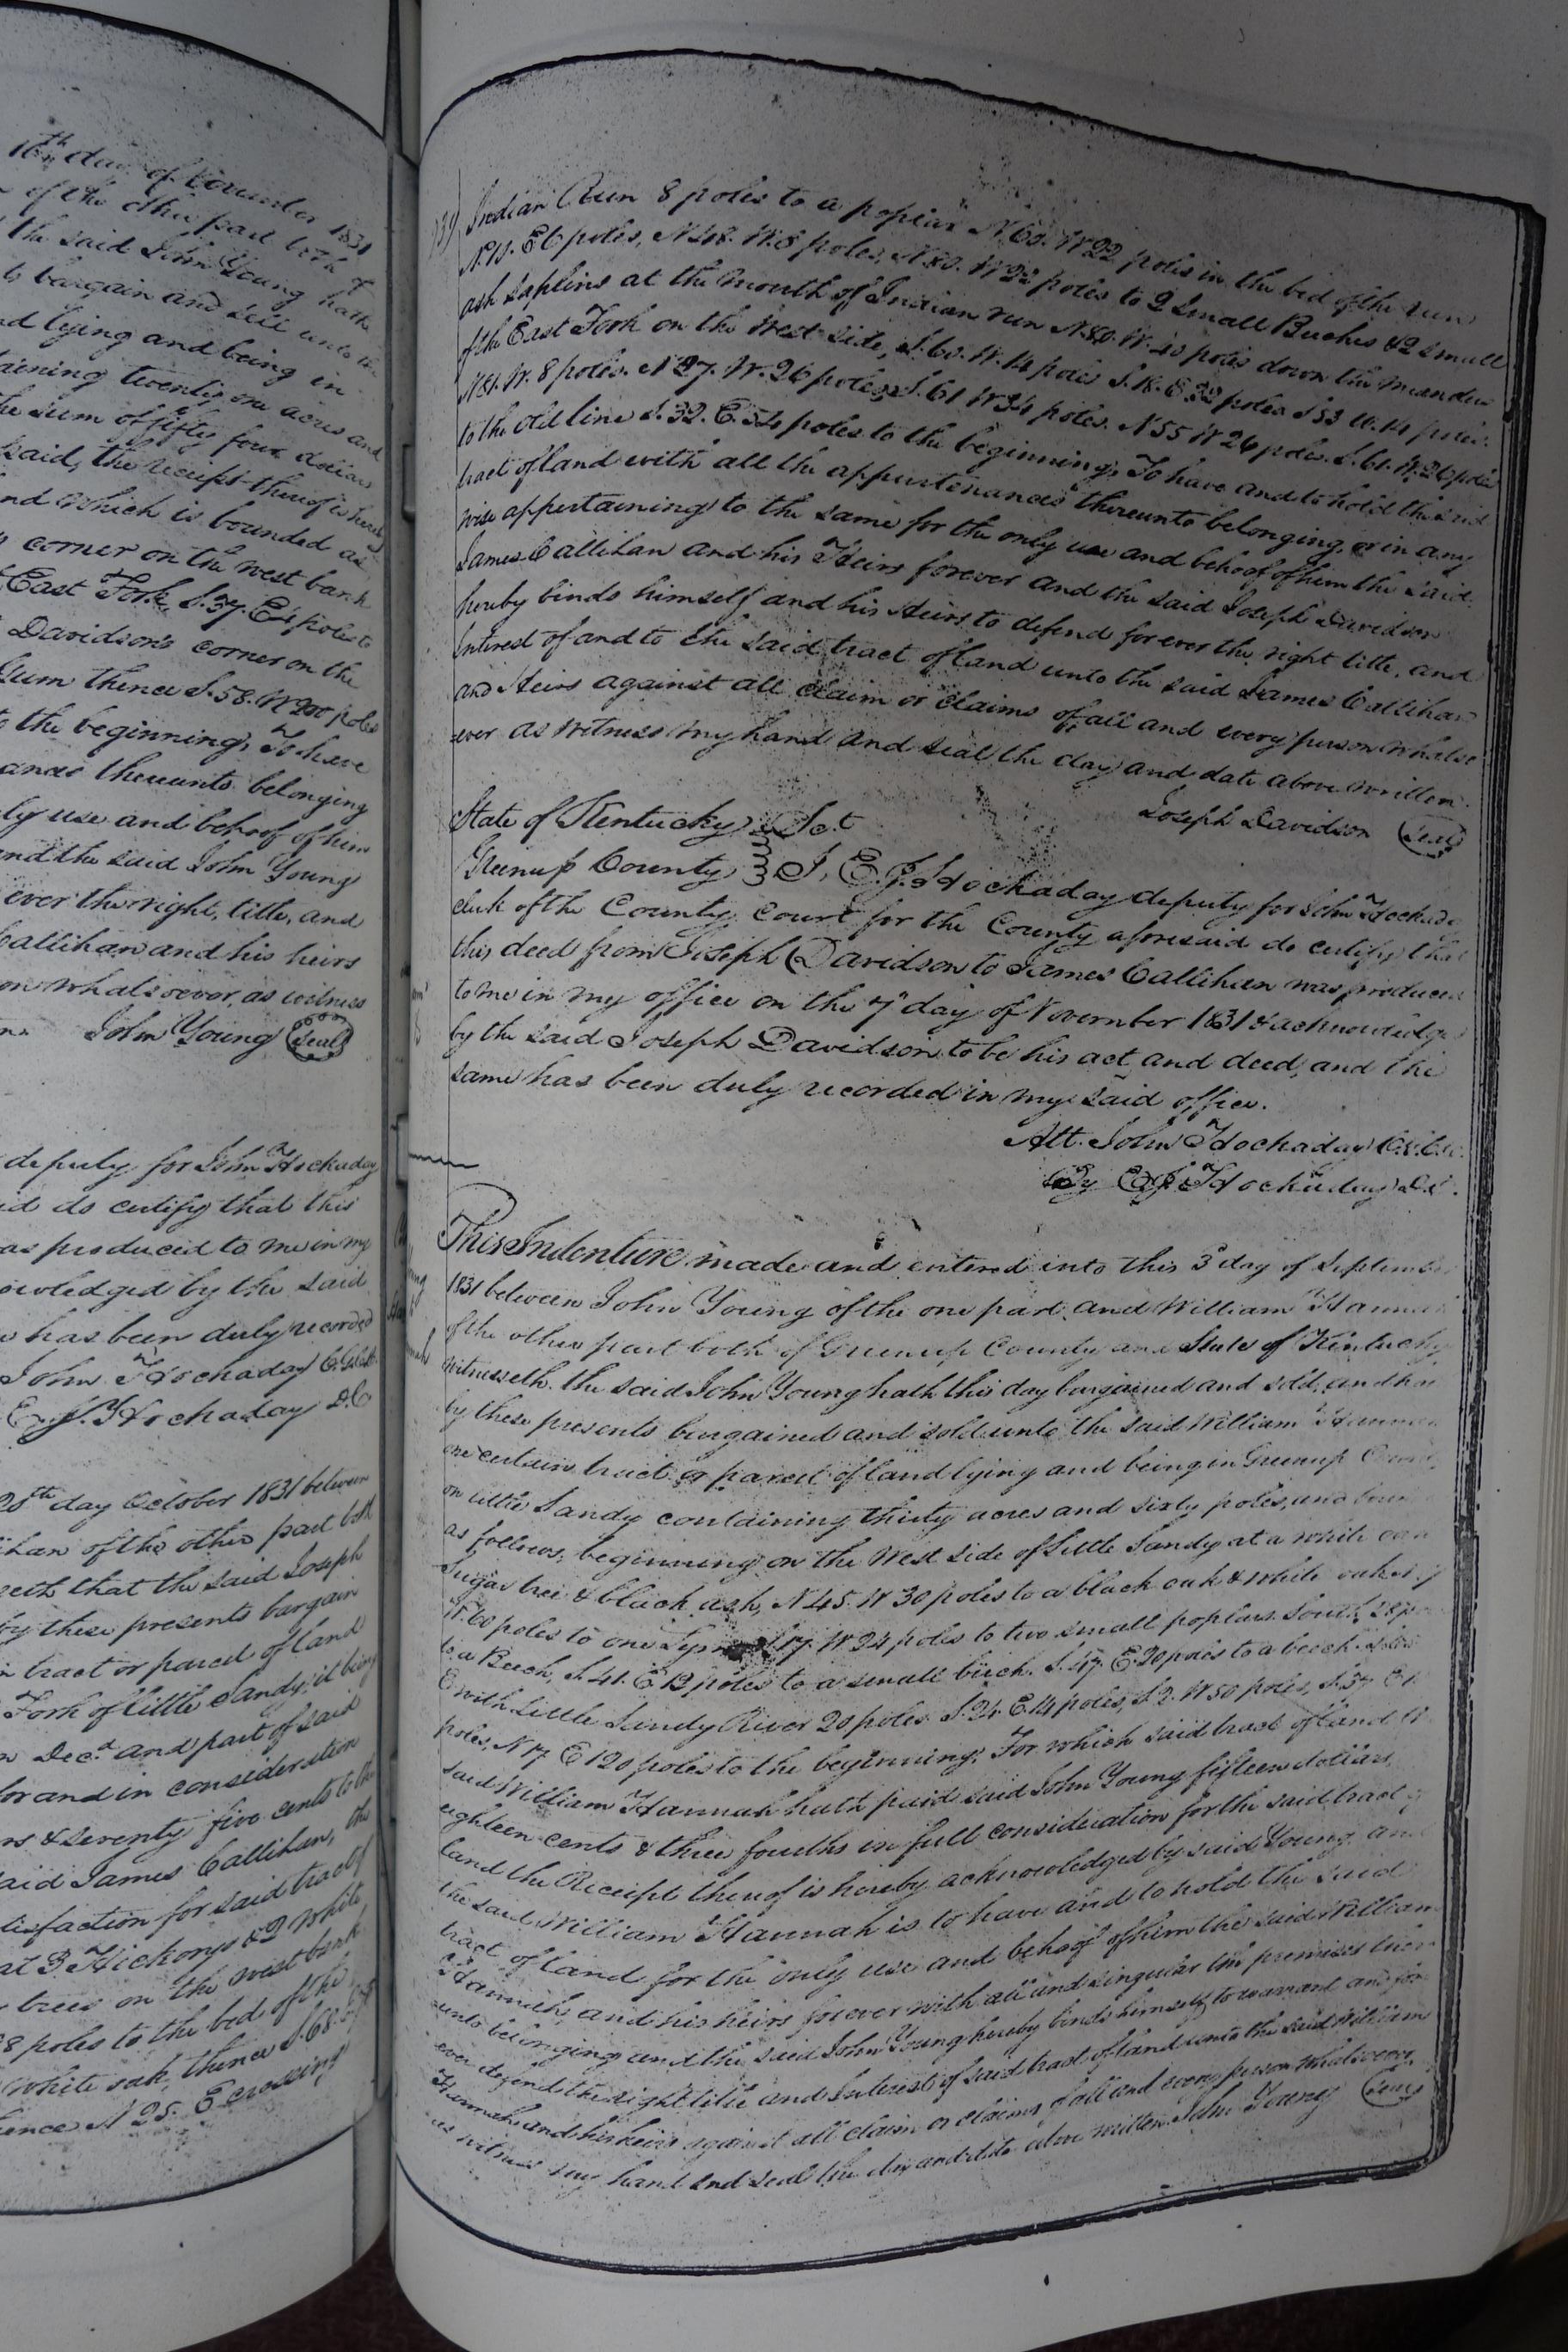 16th day of November 1831
of the other part both of
the said John Young hath
to bargain and sell unto the
lying and being in
twenty one acres and
the sum of fifty four dollars
said, the receipt thereof is hereby
and which is bounded as
corner on the west bank
East Fork S. 37. E. 4 poles to
Davidson's corner on the
Gum thence S. 58. W. 200 poles
to the beginning, To have
thereunto belonging
use and behoof of him
and the said John Young
ever the right, title, and
Callihan and his heirs
whatsoever, as witness
John Young Seal
deputy for John Hockaday
do certify that this
was produced to me in my
by the said
has been duly recorded
John Hockaday
E. J. Hockaday D.C.
28th day October 1831 between
of the other part both
that the said Joseph
by these presents bargain
tract or parcel of land
Fork of little Sandy, it being
Decd. and part of said
for and in consideration
& seventy five cents to the
said James Callihan, the
for said tract of
at 3 Hickorys & 2 White
trees on the west bank
8 poles to the bed of the
white oak, thence S. 68.
N 25. E crossing
Indian Run 8 poles to a poplar N 60. W 22 poles in the bed of the run
N. 11. E 6 poles, N 48. W. 8 poles, N. 80. W 22 poles to 2 Small Buches & 2 small
ash saplins at the mouth of Indian run N 80. W. 40 poles down the meanders
of the East Fork on the West side, S. 60. W. 14 poles S. 18. E 32 poles S 53 W. 14 poles.
N 81. W. 8 poles. N 27. W. 26 poles, S. 61 W 34 poles. N 55 W 26 poles. S. 61. W. 26 poles
to the old line S. 32. E. 54 poles to the beginning, To have and to hold the said
tract of land with all the appurtenances thereunto belonging, or in any
wise appertaining to the same for the only use and behoof of him the said
James Callihan and his Heirs forever and the said Joseph Davidson
hereby binds himself and his Heirs to defend forever the right title, and
Interest of and to the said tract of land unto the said James Callihan
and Heirs against all claim or claims of all and every person whatso
ever as witness my hand and seal the day and date above written.
Joseph Davidson Seal
State of Kentucky Sct
Greenup County I, E. J. Hockaday deputy for John Hockaday
clerk of the County Court for the County aforesaid do certify that
this deed from Joseph Davidson to James Callihan was produced
to me in my office on the 7th day of November 1831 & acknowledged
by the said Joseph Davidson to be his act and deed, and the
same has been duly recorded in my said office.
Att. John Hockaday
By E J Hockaday D.C.
This Indenture made and entered into this 3d day of September
1831 between John Young of the one part and William Hannah
of the other part both of Greenup County and State of Kentucky
witnesseth. the said John Young hath this day bargained and sold, and has
by these presents bargained and sold unto the said William Hannah
one certain tract or parcel of land lying and being in Greenup County
on little Sandy containing thirty acres and sixty poles, and
as follows, beginning on the West side of Little Sandy at a white oak
Sugar tree & black ash, N 45. W 30 poles to a black oak & white oak
W. 60 poles to one 17. W 24 poles to two small poplars South, 28
to a Beech, S. 41. E 12 poles to a small beech. S. 47. E 20 poles to a beech.
E with Little Sandy River 20 poles S. 24 E. 14 poles, S. 2. W 50 poles, S. 37 E
poles, N 17 E 120 poles to the beginning; For which said tract of land
said William Hannah hath paid said John Young fifteen dollars,
eighteen cents & three fourths in full consideration for the said tract of
land the Receipt thereof is hereby acknowledged by said Young, and
the said William Hannah is to have and to hold the said
tract of land for the only use and behoof of him the said William
Hannah, and his heirs forever with all and singular the premises there
unto belonging and the said John Young hereby binds himself to warrant and for
ever defend the right title and Interest of said tract of land unto the said William
Hannah and his heirs against all claim or claims of all and every person whatsoever,
as witness my hand and seal the day and date above written. John Young Seal